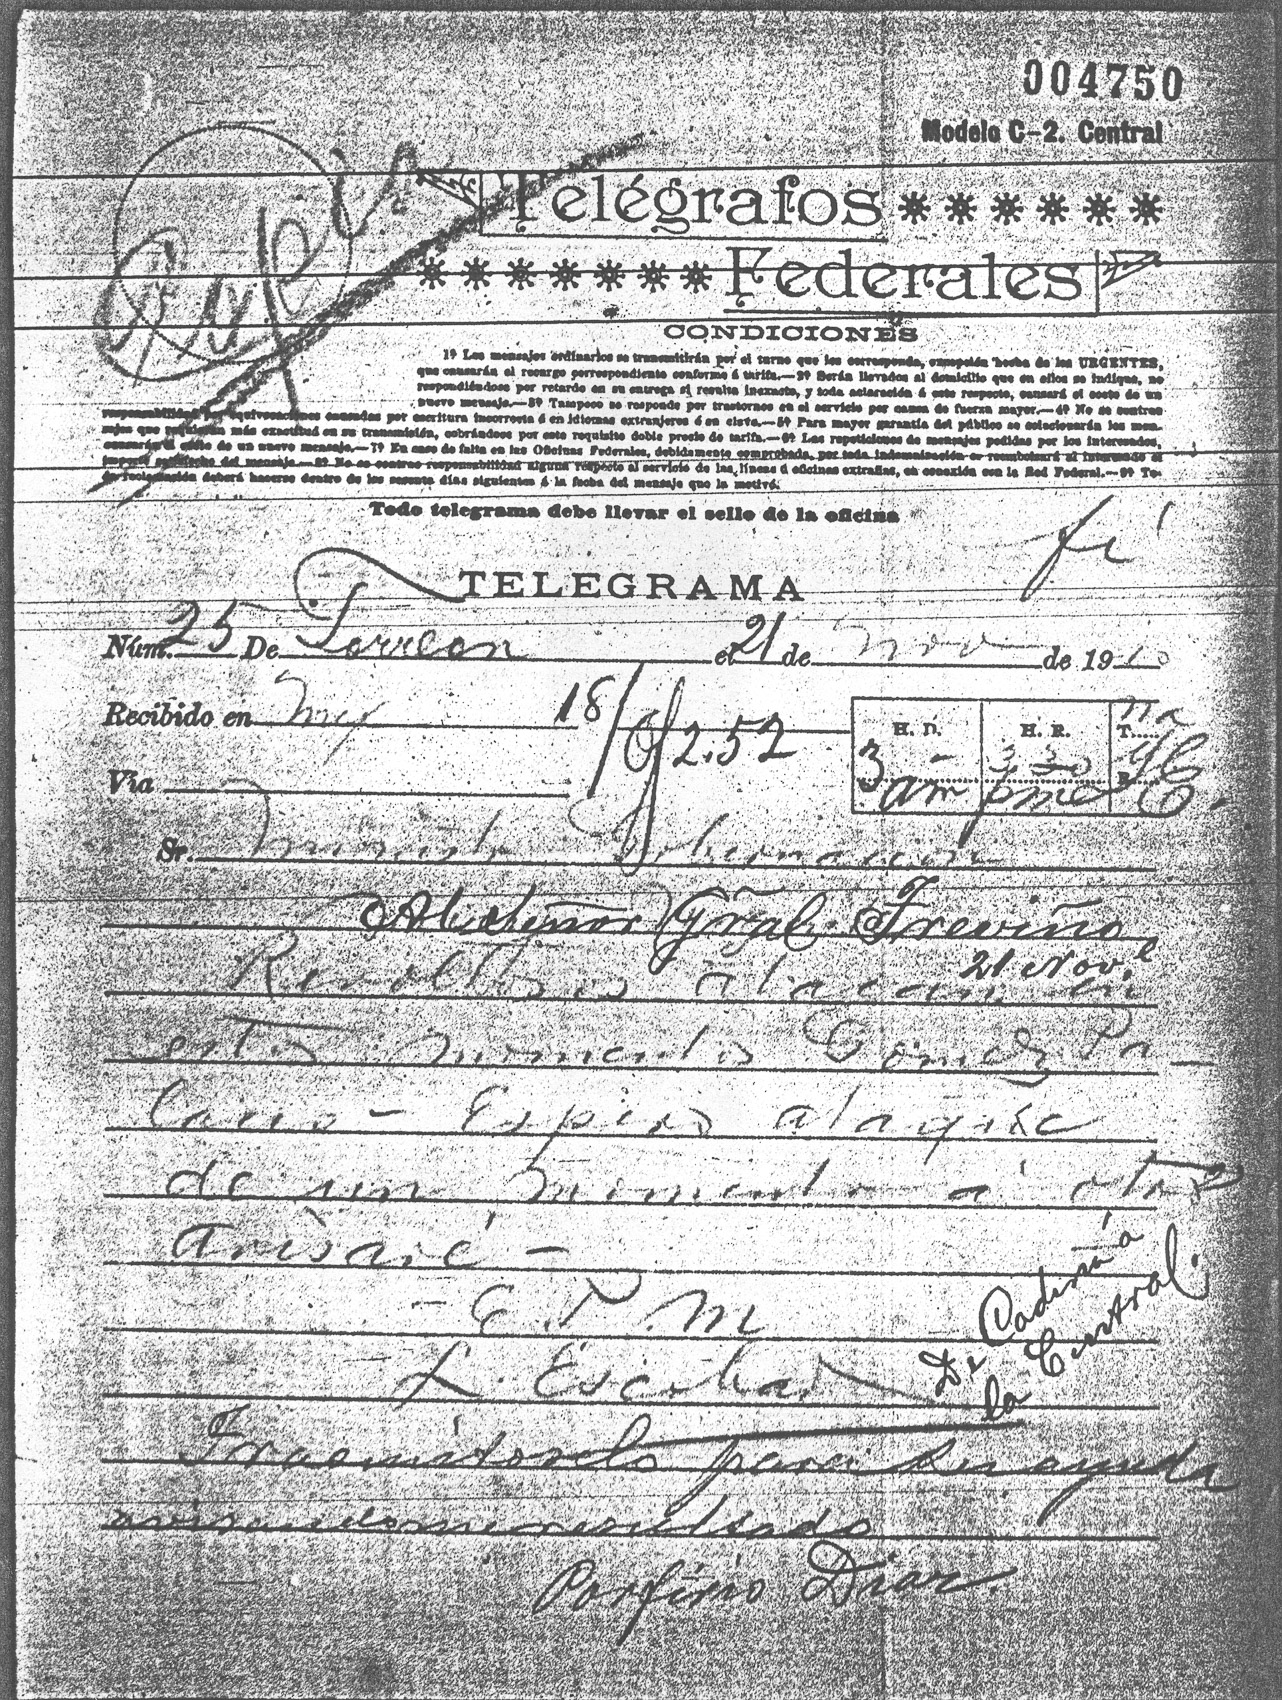 004750
Modelo C-2. Central
Telégrafos
Federales
CONDICIONES
1ª Los mensajes ordinarios se transmitirán por el turno que les corresponda, excepción hecha de los URGENTES,
que causarán el recargo correspondiente conforme á tarifa.—2ª Serán llevados al domicilio que en ellos se indique, no
respondiéndose por retardo en su entrega si resulta inexacto, y toda aclaración á este respecto, causará el costo de un
nuevo mensaje.—3ª Tampoco se responde por trastornos en el servicio por causa de fuerza mayor.—4ª No se contrae
responsabilidad por equivocaciones causadas por escritura incorrecta ó en idiomas extranjeros ó en clave.—5ª Para mayor garantía del público se colacionarán los men-
sajes que requieran más exactitud en su transmisión, cobrándose por este requisito doble precio de tarifa.—6ª Las repeticiones de mensajes pedidas por los interesados,
causarán el costo de un nuevo mensaje.—7ª En caso de falta en las Oficinas Federales, debidamente comprobada, por toda indemnización se reembolsará al interesado el
importe satisfecho del mensaje.—8ª No se contrae responsabilidad alguna respecto al servicio de las líneas ú oficinas extrañas, en conexión con la Red Federal.—9ª To-
da reclamación deberá hacerse dentro de los sesenta días siguientes á la fecha del mensaje que la motivó.
Todo telegrama debe llevar el sello de la oficina
TELEGRAMA
Núm. 25 De Torreon el 21 de Nov de 1910
Recibido en Mex 18/ Of 2.52
H. D. H. R. T.
3 - 3 30
am pm
Vía
Sr. Ministro Gobernacion
Al Señor Gral. Treviño
21 Nov.e
Revoltosos atacan en
estos momentos Gomez Pa
lacio - Espero ataque
de un momento á otro
Avisaré -
E. P. M
L. Escobar
De Cadena á
la Central.
Trasmítorelo para su ayuda
avisandome resultado
Porfirio Diaz.